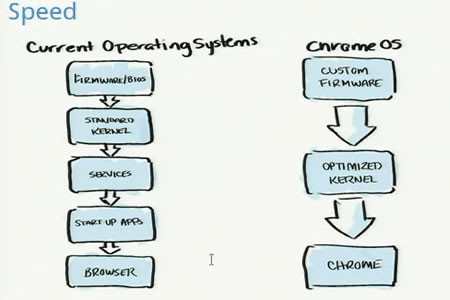 Speed
Current Operating Systems
Chrome OS
FIRMWARE/BIOS
STANDARD
KERNEL
SERVICES
START UP APPS
BROWSER
CUSTOM
FIRMWARE
OPTIMIZED
KERNEL
CHROME